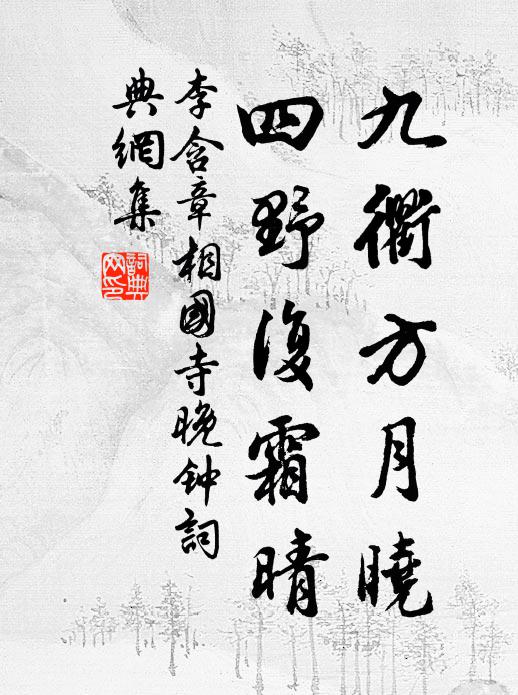 九衢方月曉
四野復霜晴
李含章相國寺晚钟詞
典網集
詞典
网印